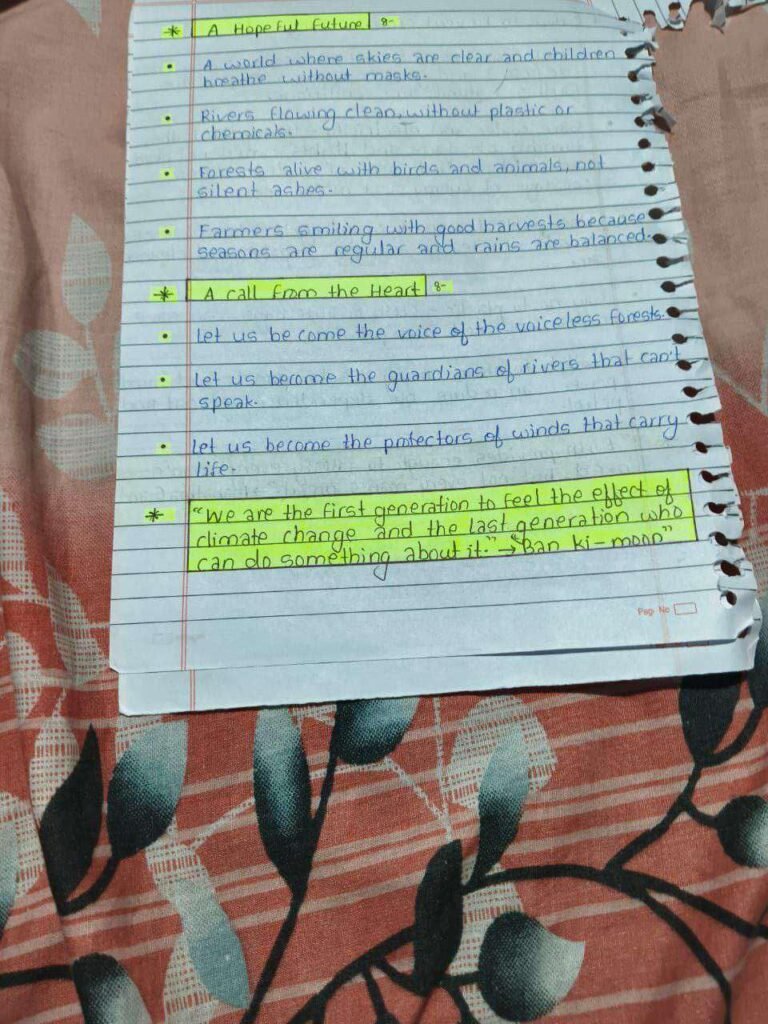 * A Hopeful Future :-
• A world where skies are clear and children
breathe without masks.
• Rivers flowing clean, without plastic or
chemicals.
• Forests alive with birds and animals, not
silent ashes.
• Farmers smiling with good harvests because
seasons are regular and rains are balanced.
* A call from the Heart :-
• Let us be come the voice of the voiceless forests.
• Let us become the guardians of rivers that can't
speak.
• Let us become the protectors of winds that carry
life.
* "We are the first generation to feel the effect of
climate change and the last generation who
can do something about it." → "Ban ki-moon"
Page No